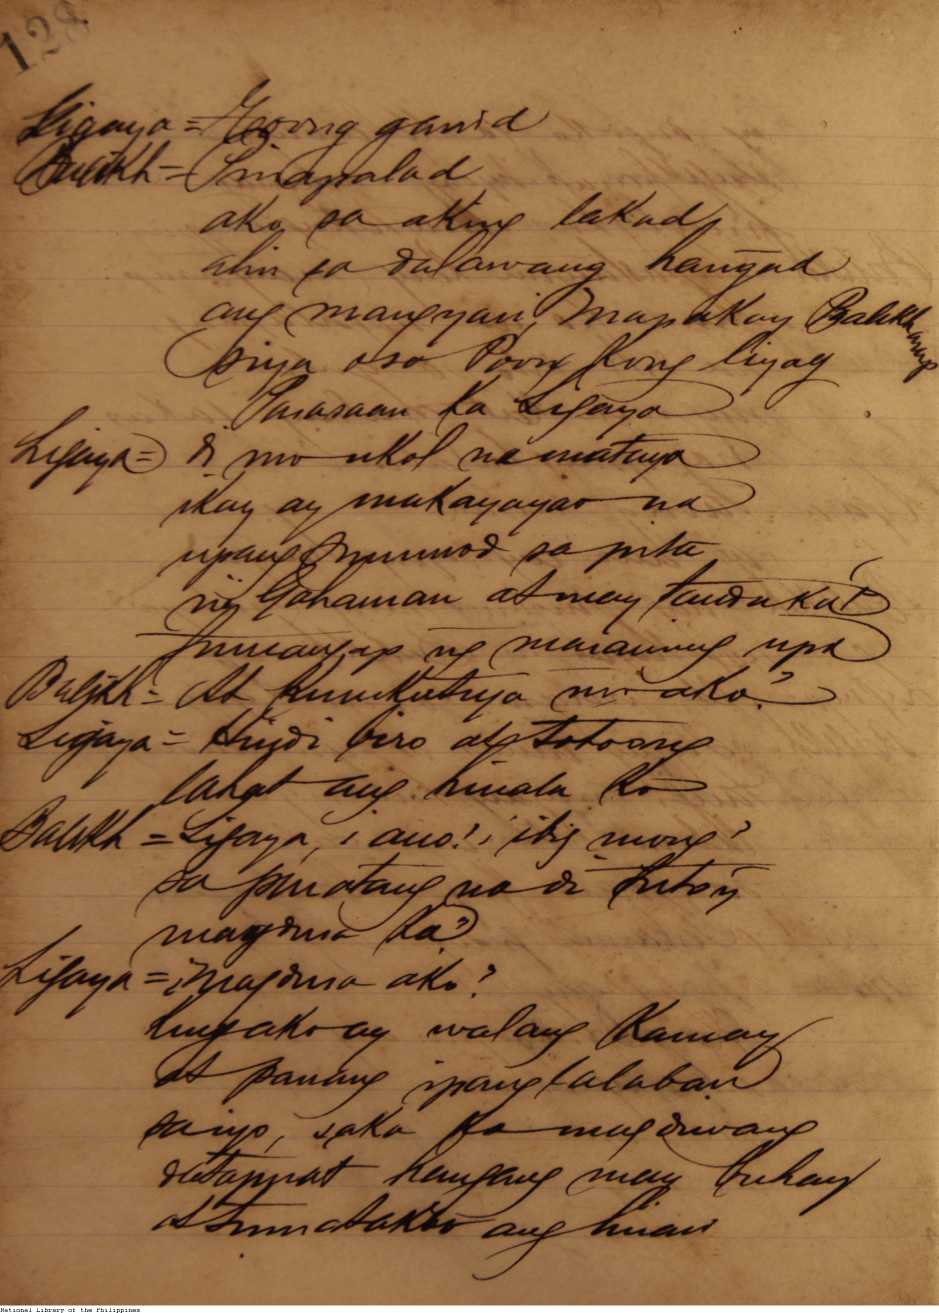 128
Ligaya = ganid
Balikh = Sinapalad
ako sa aking lakad
alin sa dalawang hangad
ang mangyari, mapa kay Balikh
siya o sa Poong Kong liyag
Parasaan ka Ligaya
Ligaya = di mo ukol na matuya
ikaw ay makayayao na
upang sumunod sa pita
ng Gahaman at may tanda ka!
tumangap ng maraming upa
Balikh = At kinukutya mo ako?
Ligaya = Hindi biro at totoong
lahat ang hinala ko
Balikh = Ligaya, ¿ano? ¿ibig mong?
sa paratang na di
magdusa ka?
Ligaya = ¿Magdusa ako?
kung ako ay walang kamay
at panang ipanglalaban
sa iyo, saka ka magdiwang
datapuat hangang may buhay
at tumatakbo ang hinini
National Library of the Philippines